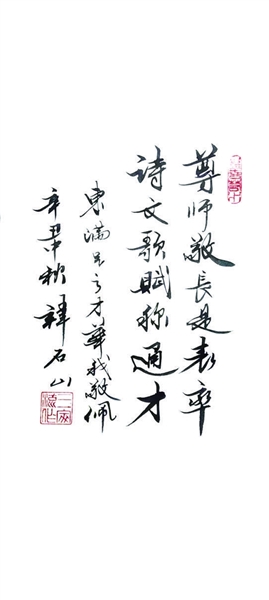 尊师敬長是表率
诗文歌賦称通才
東滿兄之才華我敬佩
辛丑秋 石山